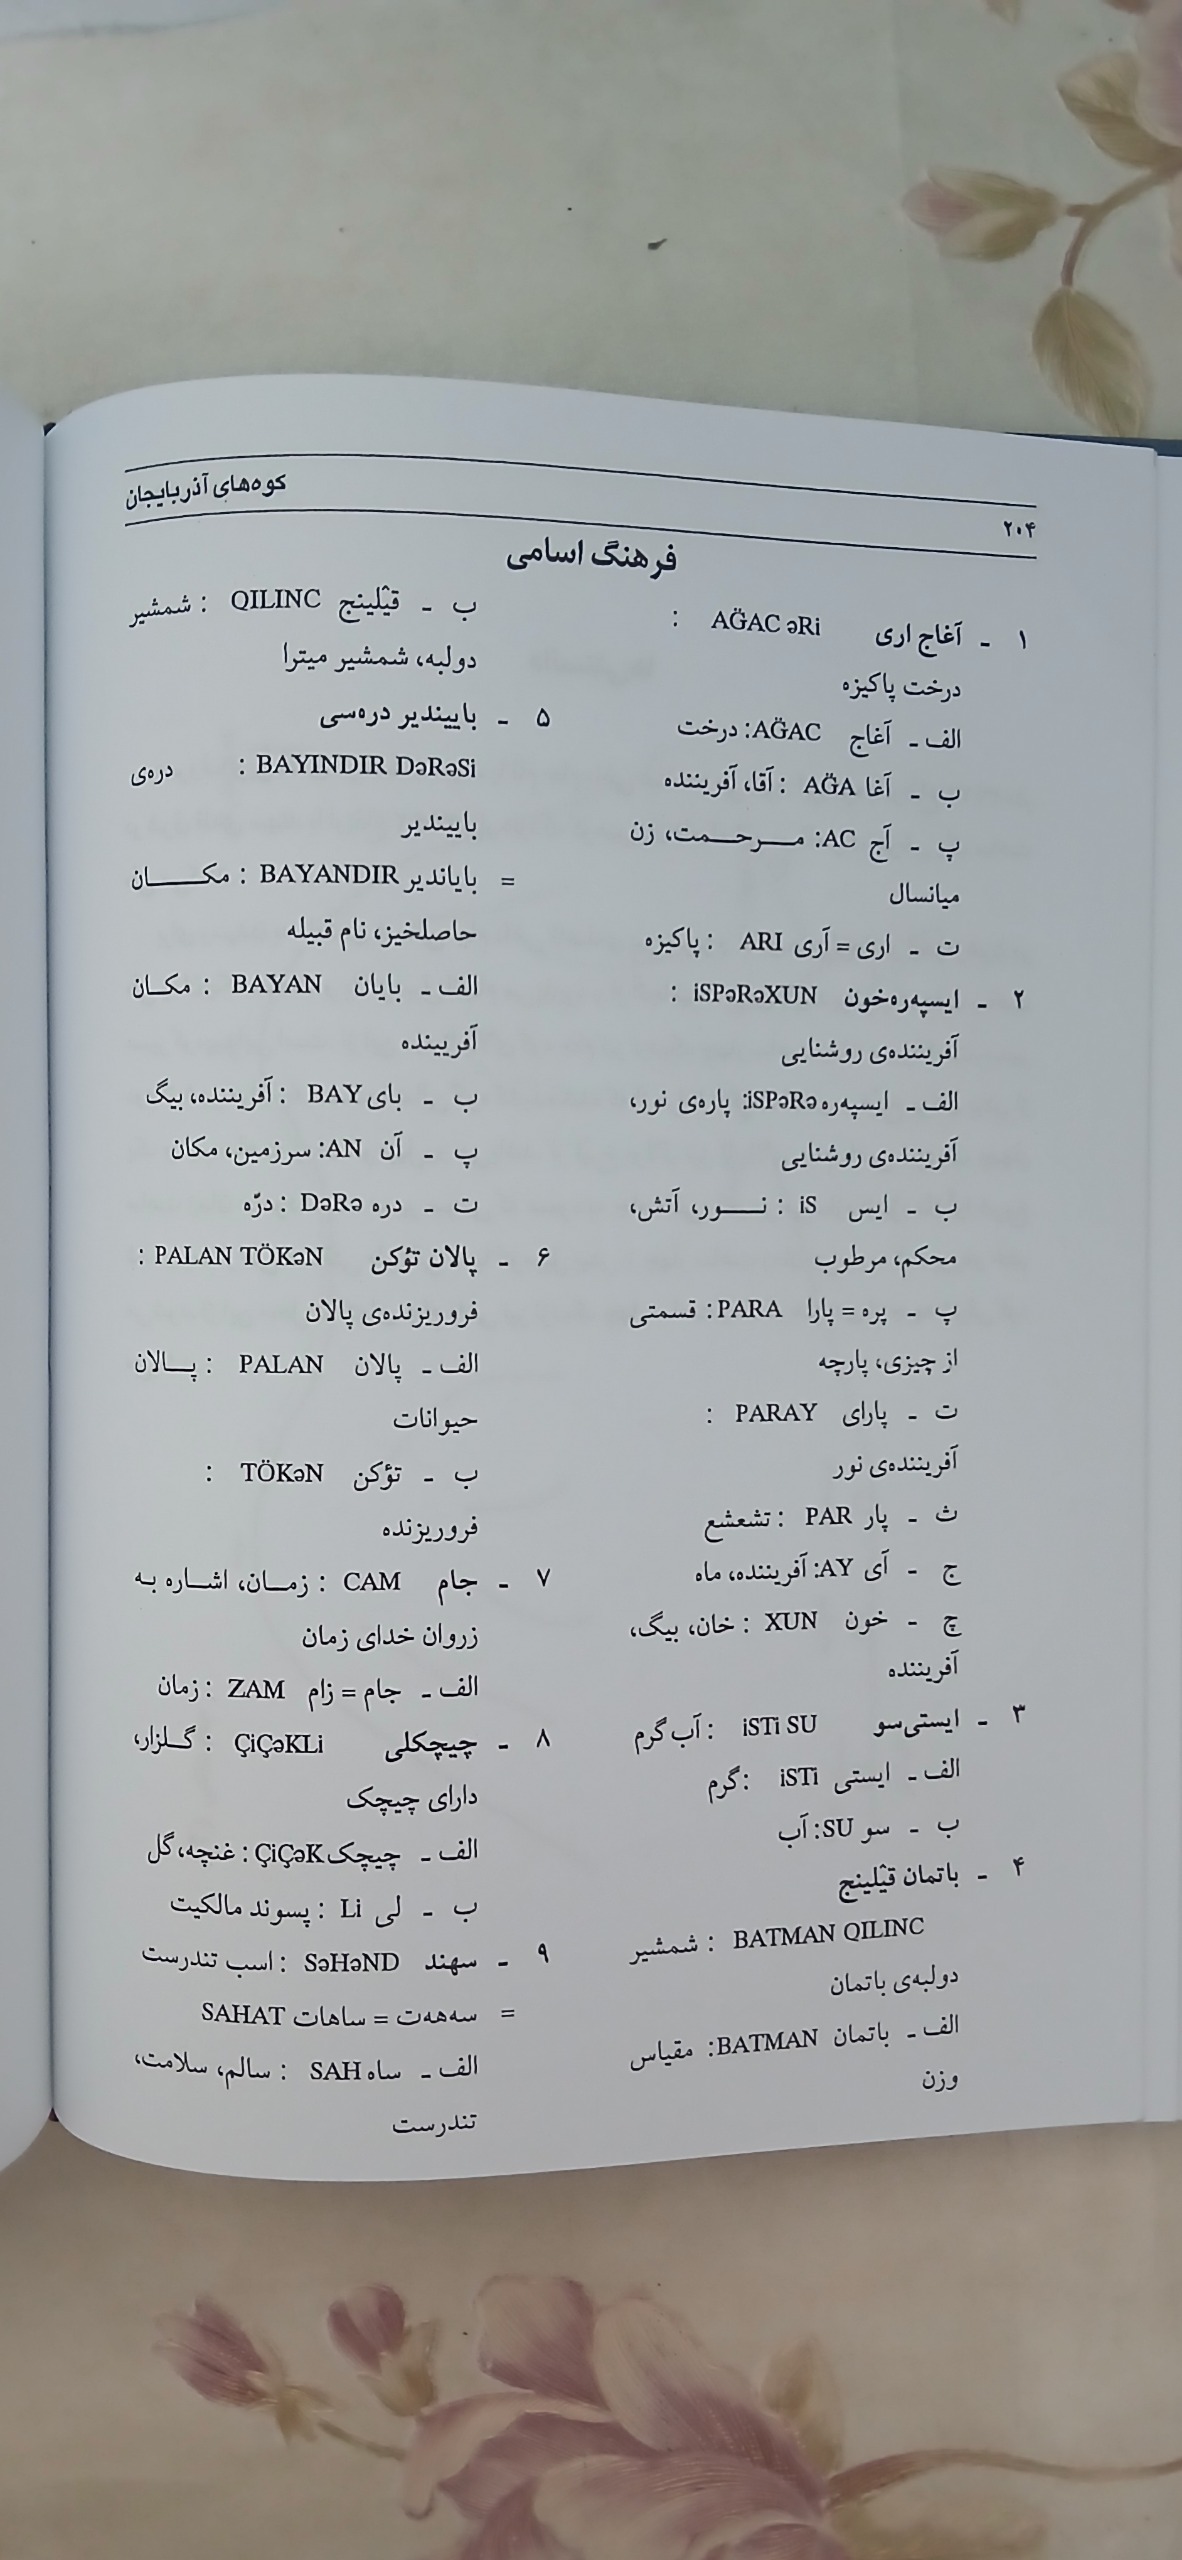 ۲۰۴
کوه‌های آذربایجان
فرهنگ اسامی
۱ ـ آغاج اری AĞAC əRi :
درخت پاکیزه
الف ـ آغاج AĞAC: درخت
ب ـ آغا AĞA : آقا، آفریننده
پ ـ آج AC: مـرحـمت، زن
میانسال
ت ـ اری = آری ARI : پاکیزه
۲ ـ ایسپه‌ره‌خون iSPəRəXUN :
آفریننده‌ی روشنایی
الف ـ ایسپه‌ره iSPəRə: پاره‌ی نور،
آفریننده‌ی روشنایی
ب ـ ایس iS : نـور، آتش،
محکم، مرطوب
پ ـ پره = پارا PARA : قسمتی
از چیزی، پارچه
ت ـ پارای PARAY :
آفریننده‌ی نور
ث ـ پار PAR : تشعشع
ج ـ آی AY: آفریننده، ماه
چ ـ خون XUN : خان، بیگ،
آفریننده
۳ ـ ایستی‌سو iSTi SU : آب گرم
الف ـ ایستی iSTi : گرم
ب ـ سو SU: آب
۴ ـ باتمان قێلینج
BATMAN QILINC : شمشیر
دولبه‌ی باتمان
الف ـ باتمان BATMAN: مقیاس
وزن
ب ـ قێلینج QILINC : شمشیر
دولبه، شمشیر میترا
۵ ـ باییندیر دره‌سی
BAYINDIR DəRəSi : دره‌ی
باییندیر
= بایاندیر BAYANDIR : مکـان
حاصلخیز، نام قبیله
الف ـ بایان BAYAN : مکـان
آفریینده
ب ـ بای BAY : آفریننده، بیگ
پ ـ آن AN: سرزمین، مکان
ت ـ دره DəRə : درّه
۶ ـ پالان تؤکن PALAN TÖKəN :
فروریزنده‌ی پالان
الف ـ پالان PALAN : پـالان
حیوانات
ب ـ تؤکن TÖKəN :
فروریزنده
۷ ـ جام CAM : زمـان، اشـاره بـه
زروان خدای زمان
الف ـ جام = زام ZAM : زمان
۸ ـ چیچکلی ÇiÇəKLi : گـلزار،
دارای چیچک
الف ـ چیچک ÇiÇəK : غنچه، گل
ب ـ لی Li : پسوند مالکیت
۹ ـ سهند SəHəND : اسب تندرست
= سه‌هه‌ت = ساهات SAHAT
الف ـ ساه SAH : سالم، سلامت،
تندرست